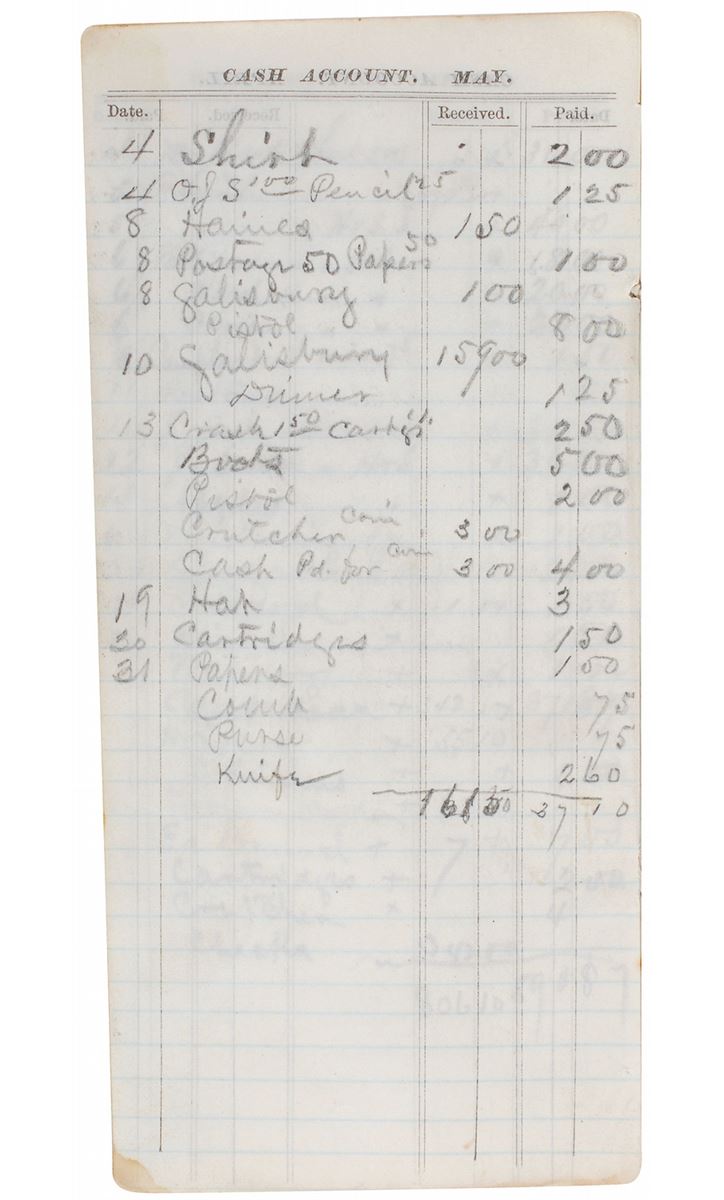 CASH ACCOUNT. MAY.
Date. Received. Paid.
4 Shirt 2 00
4 O.J S 1 00 Pencil 25 1 25
8 Haines 1 50
8 Postage 50 Papers 50 1 00
8 Galisbury 1 00
Pistol 8 00
10 Galisbury 159 00
Dinner 1 25
13 Crash 1 50 Cartgs 1. 2 50
Boots 5 00
Pistol 2 00
Crutcher Corn 3 00
Cash Pd. for Corn 3 00 4 00
19 Hat 3
30 Cartridges 1 50
31 Papers 1 50
Comb 75
Purse 75
Knife 2 60
37 10